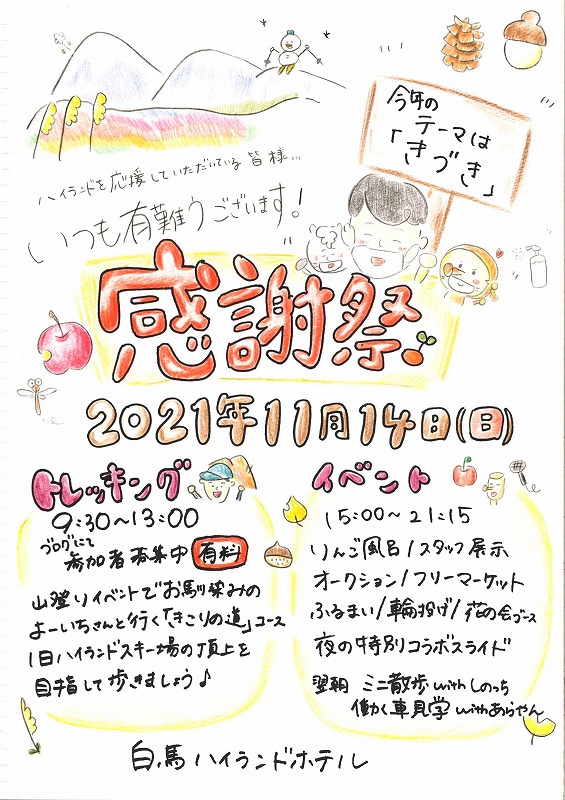 今年の
テーマは
「きづき」
ハイランドを応援していただいている皆様…
いつも有難うございます!
感謝祭
2021年11月14日(日)
トレッキング
9:30〜13:00
ブログにて
参加者募集中 有料
山登りイベントでお馴染みの
よーいちさんと行く「きこりの道」コース
旧ハイランドスキー場の頂上を
目指して歩きましょう♪
イベント
15:00〜21:15
りんご風呂/スタッフ展示
オークション/フリーマーケット
ふるまい/輪投げ/花の会ブース
夜の特別コラボスライド
翌朝 ミニ散歩withしのっち
働く車見学withあらやん
白馬ハイランドホテル